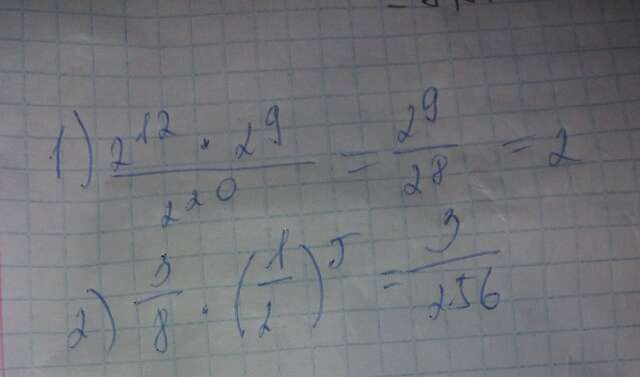 1) \frac{2^{12} \cdot 2^9}{2^{20}} = \frac{2^9}{2^8} = 2
2) \frac{3}{8} \cdot \left(\frac{1}{2}\right)^5 = \frac{3}{256}